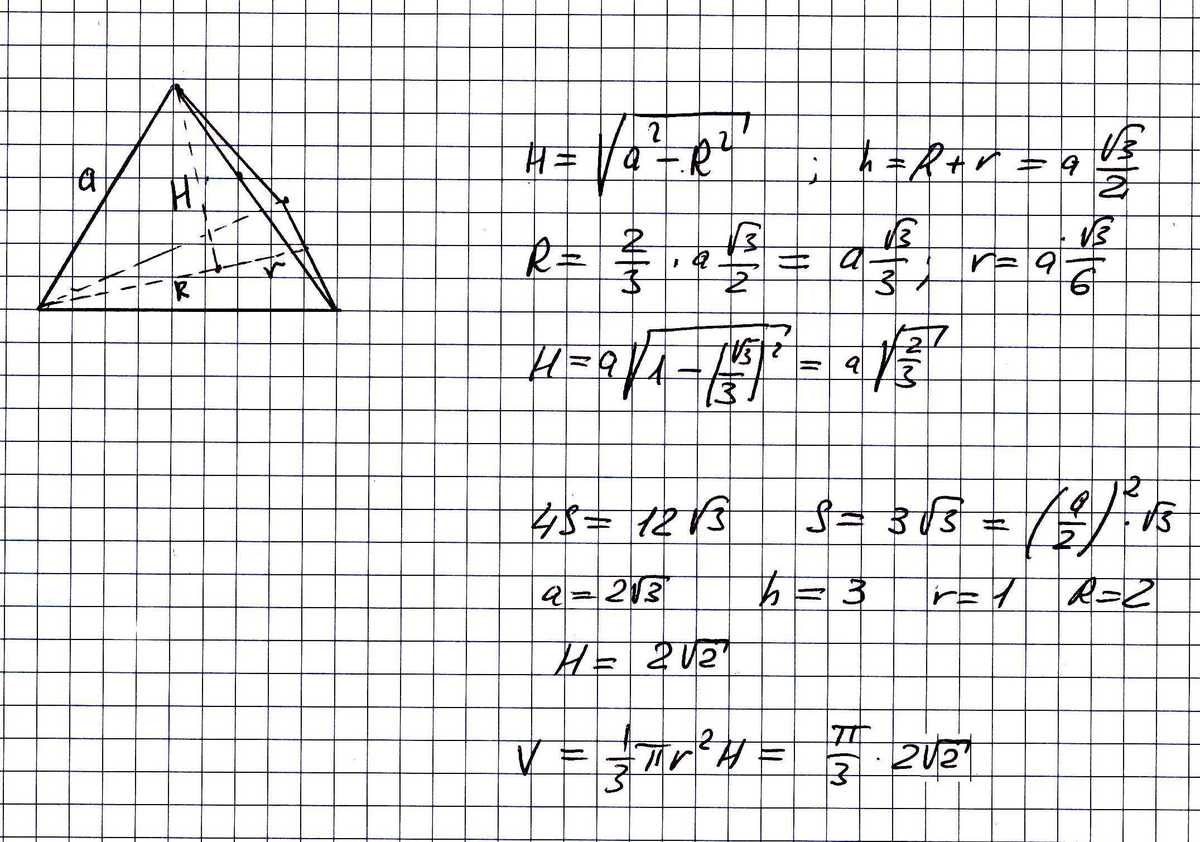 a
H
R
r
H = √(a² - R²) ; h = R + r = a √3/2
R = 2/3 · a √3/2 = a √3/3 ; r = a · √3/6
H = a √(1 - (√3/3)²) = a √(2/3)
4S = 12√3 S = 3√3 = (a/2)² · √3
a = 2√3 h = 3 r = 1 R = 2
H = 2√2
V = 1/3 πr²H = π/3 · 2√2